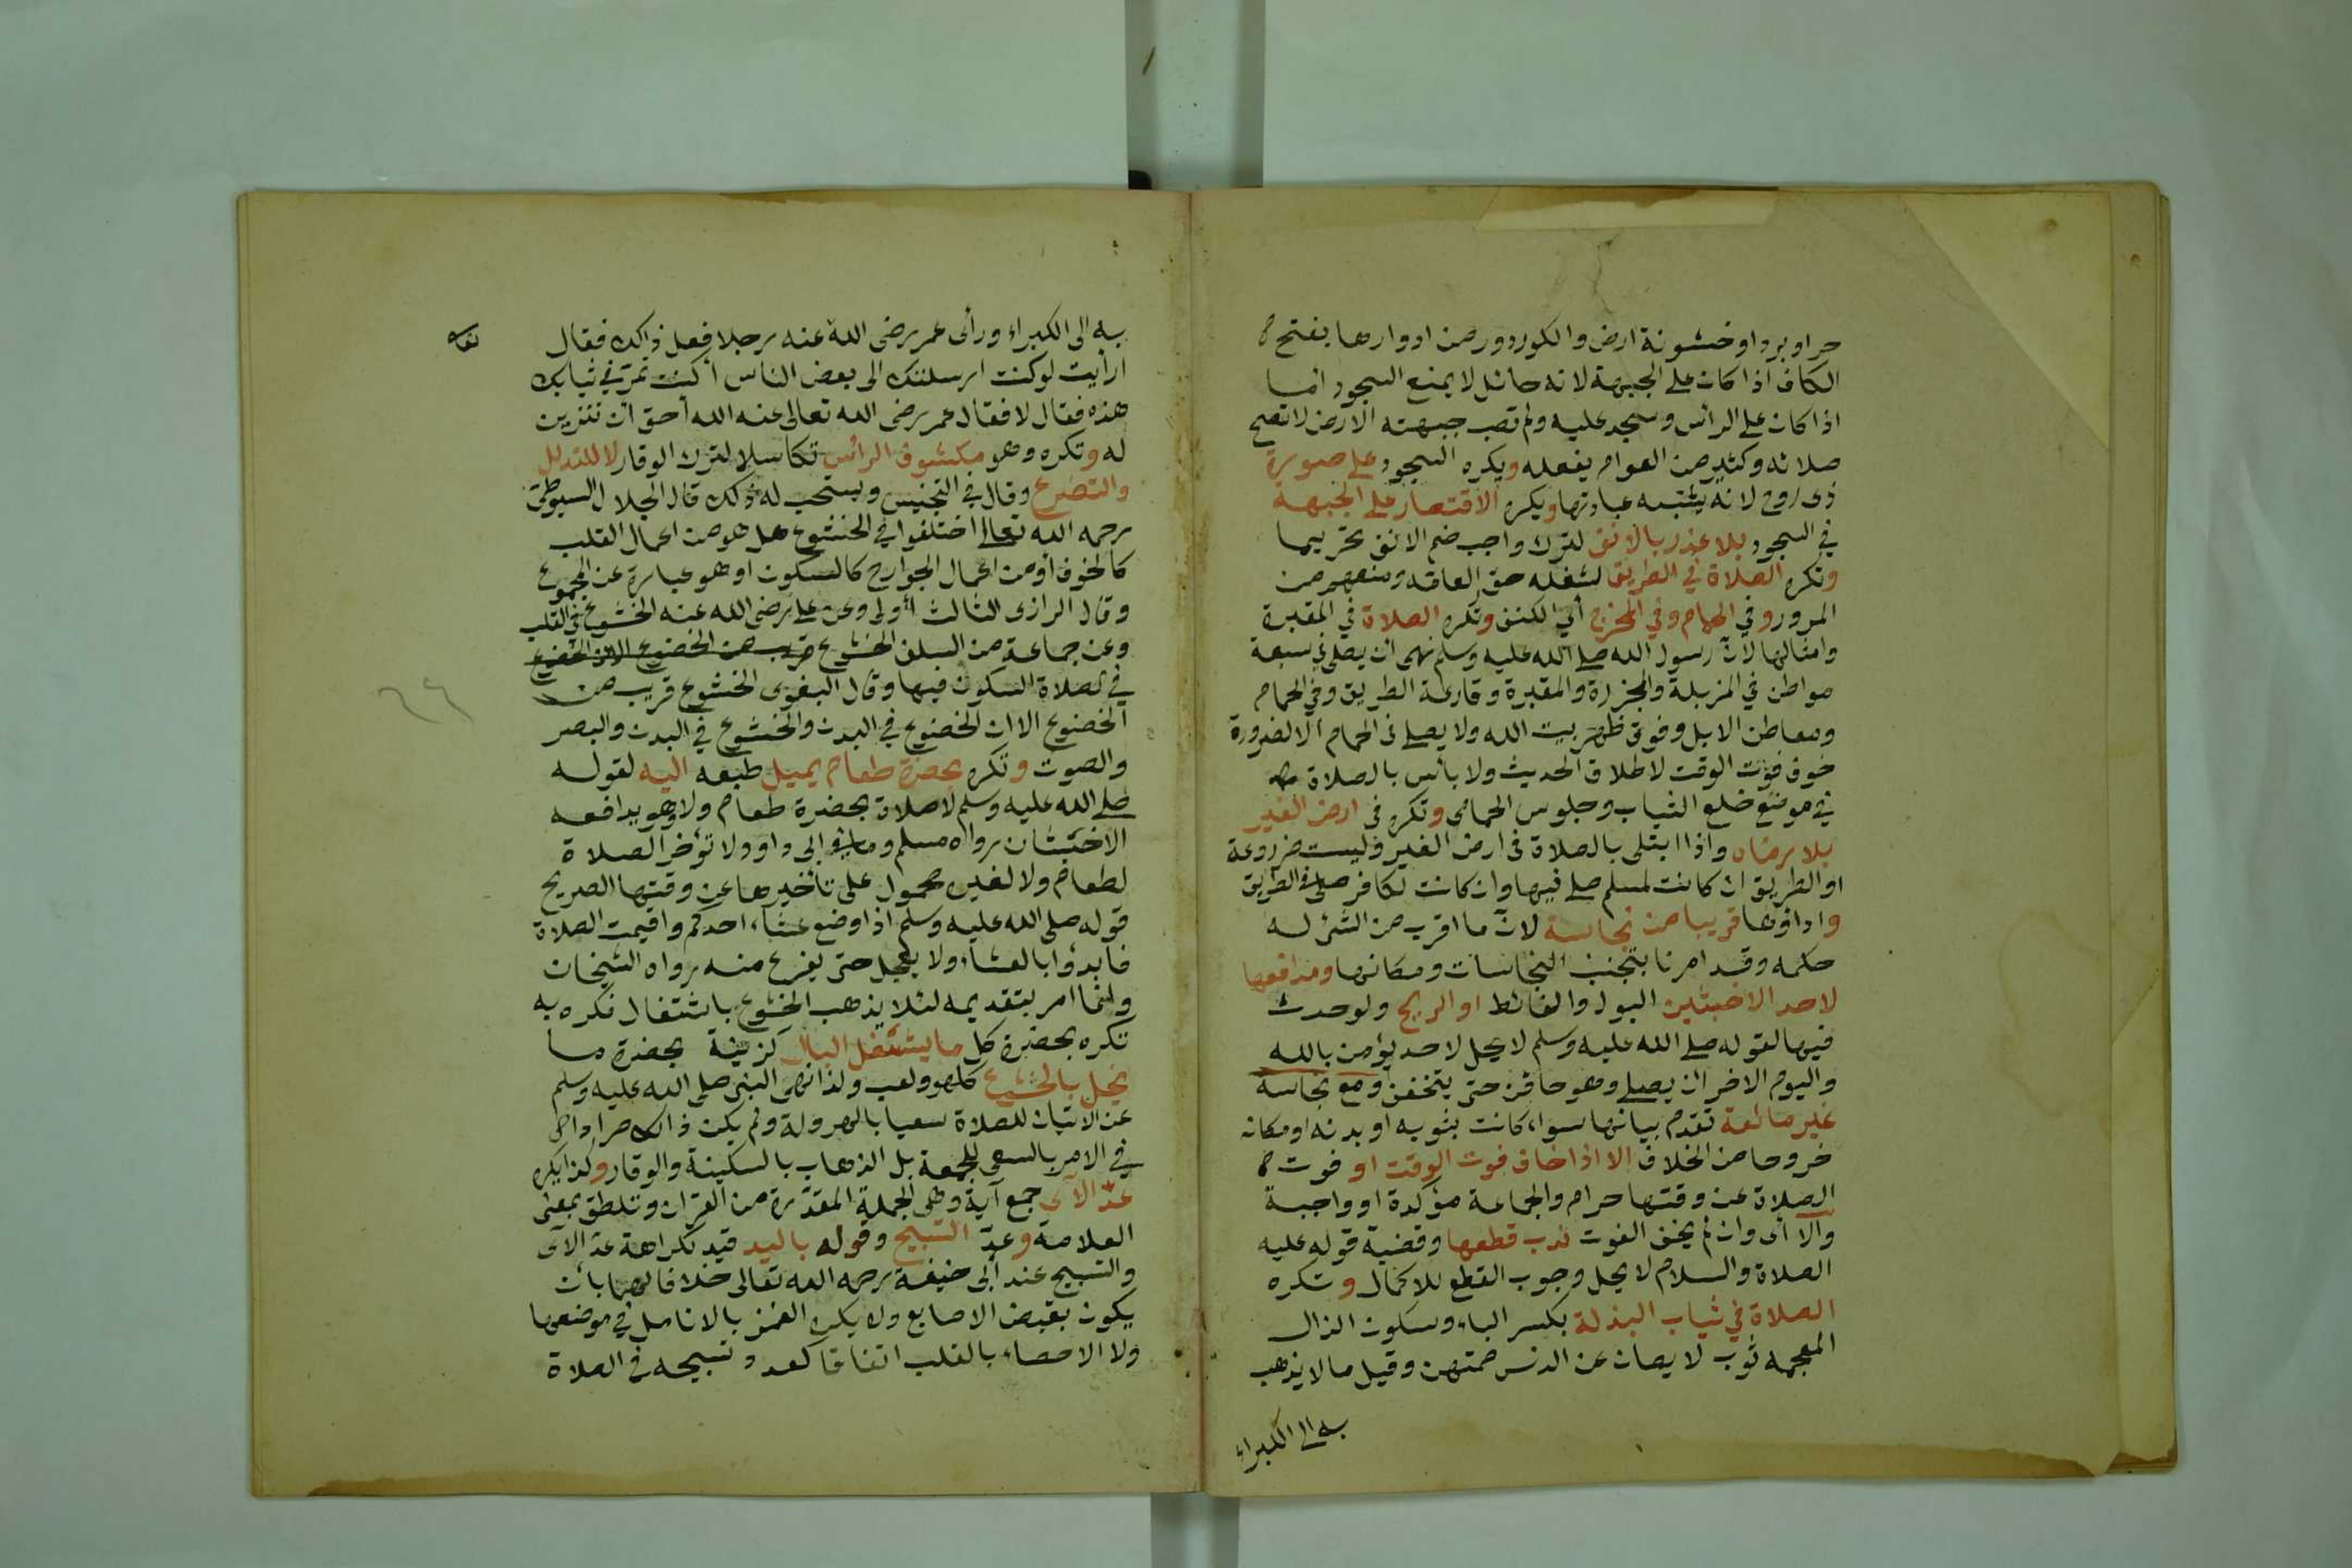 حرا او بردا او خشونة ارض والكور دور من ادوارها بفتح
الكاف اذا كان على الجبهة لانه حائل لا يمنع السجود اما
اذا كان على الرأس وسجد عليه ولم تصب جبهته الارض لا تصح
صلاته وكثير من العوام يفعله ويكره السجود على صورة
ذى روح لانه يشبه عبادتها ويكره الاقتصار على الجبهة
في السجود بلا عذر بالانف لترك واجب ضم الانف تحريما
وتكره الصلاة في الطريق لشغله حق العامة ومنعهم من
المرور وفي الحمام وفي المخرج أي الكنيف وتكره الصلاة في المقبرة
وامثالها لان رسول الله صلى الله عليه وسلم نهى ان يصلى في سبعة
مواطن في المزبلة والمجزرة والمقبرة وقارعة الطريق وفي الحمام
ومعاطن الابل وفوق ظهر بيت الله ولا يصلى في الحمام الا لضرورة
خوف فوت الوقت لاطلاق الحديث ولا بأس بالصلاة
في موضع خلع الثياب وجلوس الحمامى وتكره في ارض الغير
بلا رضاه واذا ابتلى بالصلاة في ارض الغير وليست مزروعة
او الطريق ان كانت لمسلم صلى فيها وان كانت لكافر صلى في الطريق
واداؤها قريبا من نجاسة لان ما اقرب من الشئ له
حكمه وقد امرنا بتجنب النجاسات ومكانها ومدافعها
لاحد الاخبثين البول والغائط او الريح ولو حدث
فيها لقوله صلى الله عليه وسلم لا يحل لاحد يؤمن بالله
واليوم الاخر ان يصلى وهو حاقن حتى يتخفف ومع نجاسة
غير مانعة تقدم بيانها سواء كانت بثوبه او بدنه او مكانه
خروجا من الخلاف الا اذا خاف فوت الوقت او فوت
الصلاة عن وقتها حرام والجماعة مؤكدة او واجبة
والا اى وان لم يخف الفوت ندب قطعها وقضية قوله عليه
الصلاة والسلام لا يحل وجوب القطع للاكمال وتكره
الصلاة في ثياب البذلة بكسر الباء وسكون الذال
المعجمه ثوب لا يصان عن الدنس ممتهن وقيل ما لا يذهب
به الى الكبراء
به الى الكبراء ورأى عمر رضى الله عنه رجلا فعل ذلك فقال
ارأيت لو كنت ارسلتك الى بعض الناس أكنت تمر في ثيابك
هذه فقال لا فقال عمر رضى الله تعالى عنه الله أحق ان تتزين
له وتكره وهو مكشوف الرأس تكاسلا لترك الوقار لا للتذلل
والتضرع وقال في التجنيس ويستحب له ذلك قال الجلال السيوطى
رحمه الله تعالى اختلفوا في الخشوع هل هو من اعمال القلب
كالخوف أو من اعمال الجوارح كالسكون او هو عبارة عن المجموع
وقال الرازى الثالث أولى وعن على رضى الله عنه الخشوع في القلب
وعن جماعة من السلف الخشوع قريب من الخضوع الا ان الخضوع
في الصلاة السكون فيها وقال البغوى الخشوع قريب من
الخضوع الا ان الخضوع في البدن والخشوع في البدن والبصر
والصوت وتكره بحضرة طعام يميل طبعه اليه لقوله
صلى الله عليه وسلم لا صلاة بحضرة طعام ولا وهو يدافعه
الاخبثان رواه مسلم وما في ابى داود لا تؤخر الصلاة
لطعام ولا لغيره محمول على تأخيرها عن وقتها الصريح
قوله صلى الله عليه وسلم اذا وضع عشاء احدكم واقيمت الصلاة
فابدؤا بالعشاء ولا يعجل حتى يفرغ منه رواه الشيخان
وانما امر بتقديمه لئلا يذهب الخشوع باشتغال فكره به
تكره بحضرة كل ما يشغل البال كزينة بحضرة ما
يخل بالخشوع كلهو ولعب ولذا نهى النبى صلى الله عليه وسلم
عن الاتيان للصلاة سعيا بالهرولة ولم يكن ذلك مرادا
في الامر بالسعى للجمعة بل الذهاب بالسكينة والوقار وكذا يكره
عدّ الآى جمع آية وهى الجملة المقدرة من القران وتطلق بمعنى
العلامة وعدّ التسبيح وقوله باليد قيد لكراهة عدّ الآى
والتسبيح عند أبى حنيفة رحمه الله تعالى خلافا لهما بأن
يكون بقبض الاصابع ولا يكره الغمز بالانامل في موضعها
ولا الاحصاء بالقلب اتفاقا كعدد تسبيحه في الصلاة
٦٦